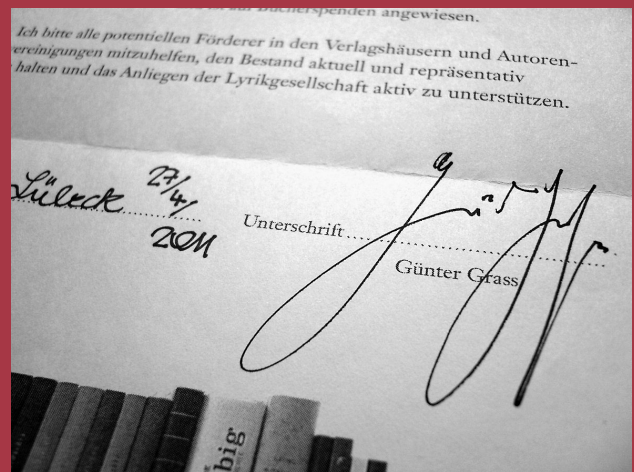 auf Bücherspenden angewiesen.
Ich bitte alle potentiellen Förderer in den Verlagshäusern und Autoren-
ereinigungen mitzuhelfen, den Bestand aktuell und repräsentativ
halten und das Anliegen der Lyrikgesellschaft aktiv zu unterstützen.
Lübeck 27/4/
2011
Unterschrift
Günter Grass
big